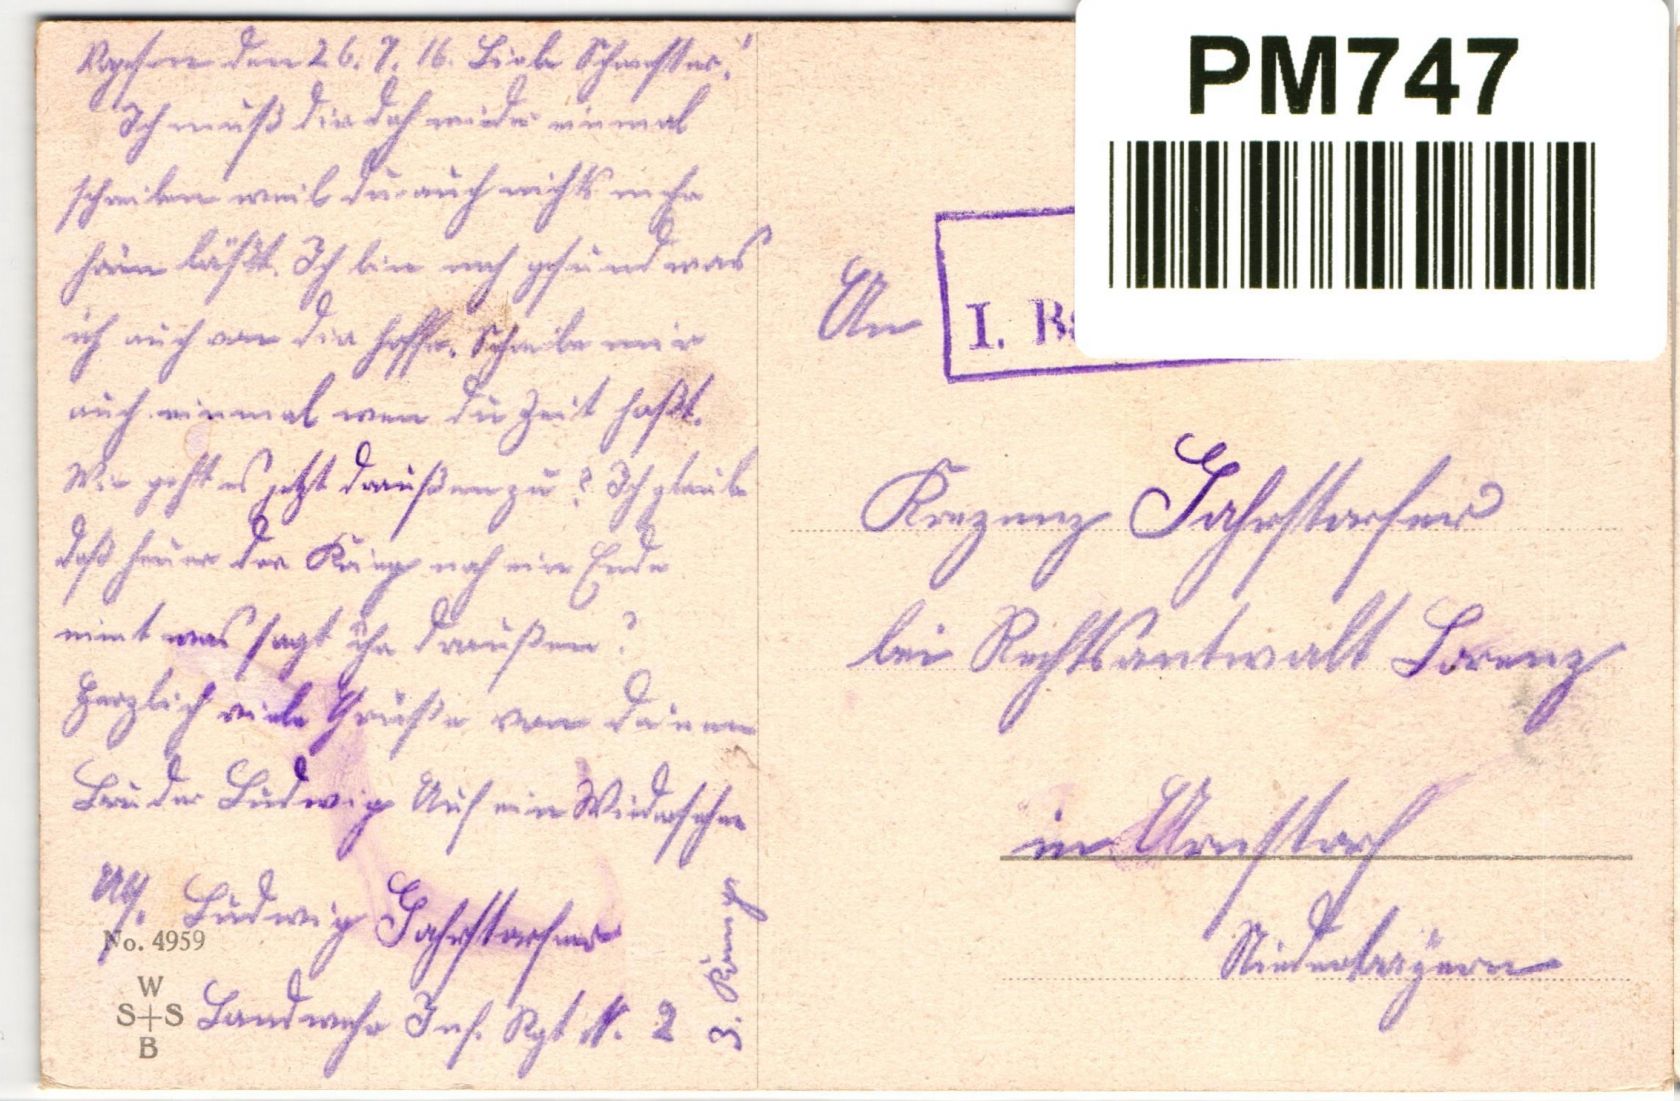 den 26. 7. 16. Liebe Schwester!
Ich muß dir doch wieder einmal
schreiben weil du auch nichts mehr
hören läßt. Ich bin noch gesund was
ich auch von dir hoffe. Schreibe mir
auch einmal wen du Zeit haßt.
Wie geht es jetzt draußen zu? Ich glaube
daß heuer der Krieg noch ein Ende
nimt was sagt ihr draußen?
Herzlich viele Grüße von deinem
Bruder Ludwig Auf ein Wiedersehen
Ludwig
Landwehr Inf. Rgt N. 2
3. Komp
No. 4959
W
S+S
B
PM747
I. B
An
Krezenz
bei Rechtsanwalt Lorenz
in Arnstorf
Niederbayern